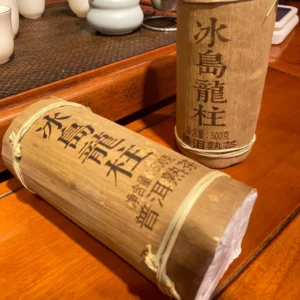 冰島龍柱
净含量:500克
普洱熟茶
冰島龍柱
净含量:500克
洱熟茶